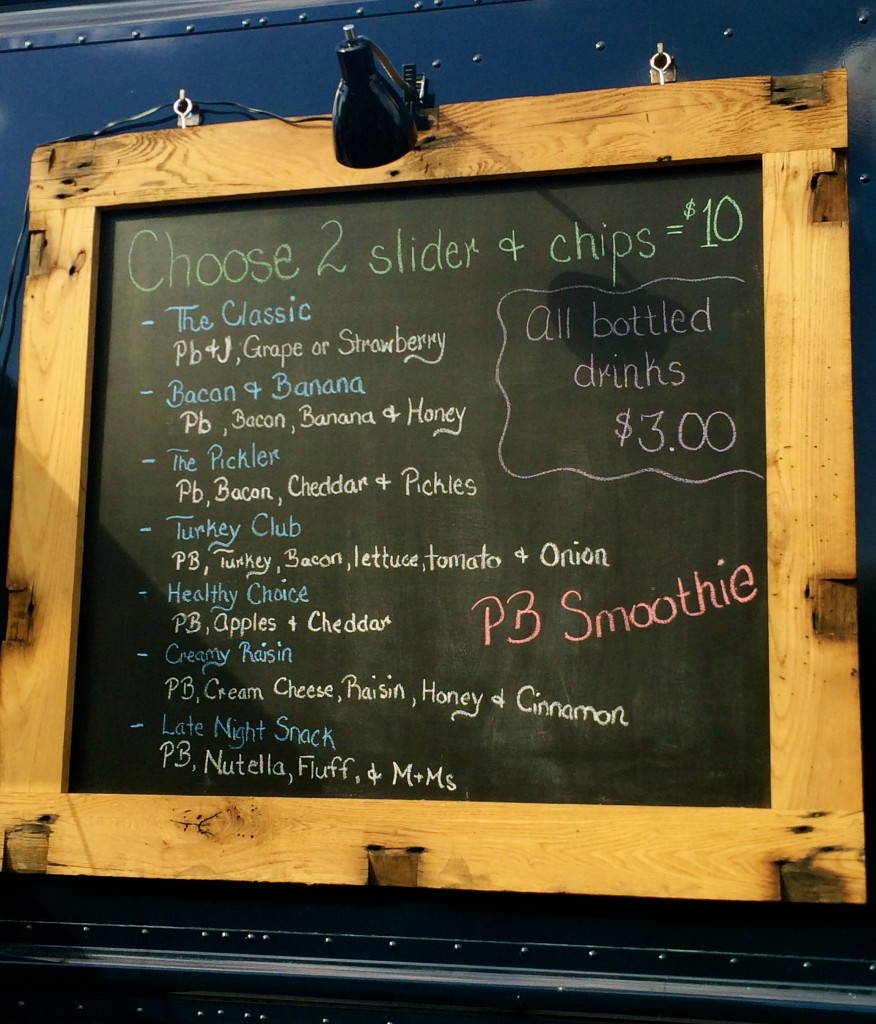 Choose 2 slider + chips = $10
- The Classic
Pb+J, Grape or Strawberry
- Bacon + Banana
Pb, Bacon, Banana + Honey
- The Pickler
Pb, Bacon, Cheddar + Pickles
- Turkey Club
PB, Turkey, Bacon, lettuce, tomato + Onion
- Healthy Choice
PB, Apples + Cheddar
- Creamy Raisin
PB, Cream Cheese, Raisin, Honey + Cinnamon
- Late Night Snack
PB, Nutella, Fluff, & M+Ms
all bottled
drinks
$3.00
PB Smoothie